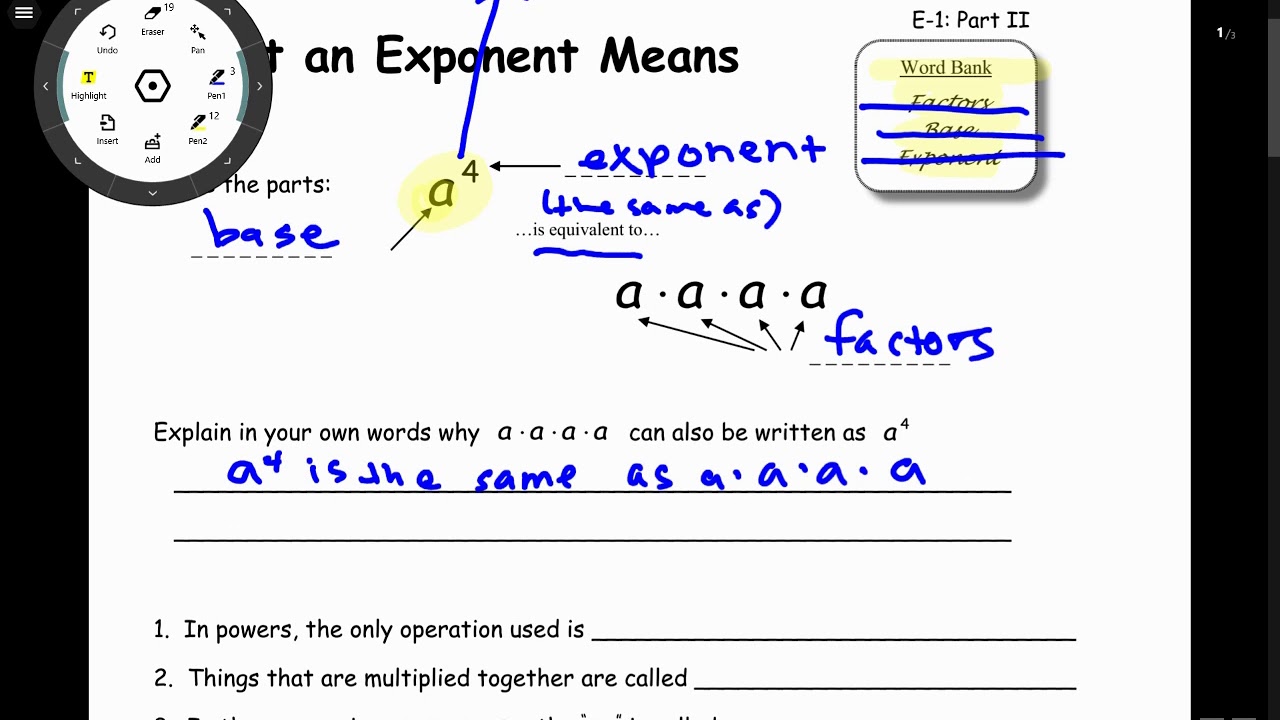 E-1: Part II
1/3
19
Eraser
Undo
Pan
T
Highlight
3
Pen1
Insert
12
Pen2
Add
t an Exponent Means
Word Bank
Factors
Base
Exponent
the parts:
a⁴
exponent
(the same as)
base
...is equivalent to...
a · a · a · a
factors
Explain in your own words why a · a · a · a can also be written as a⁴
a⁴ is the same as a · a · a · a
1. In powers, the only operation used is
2. Things that are multiplied together are called